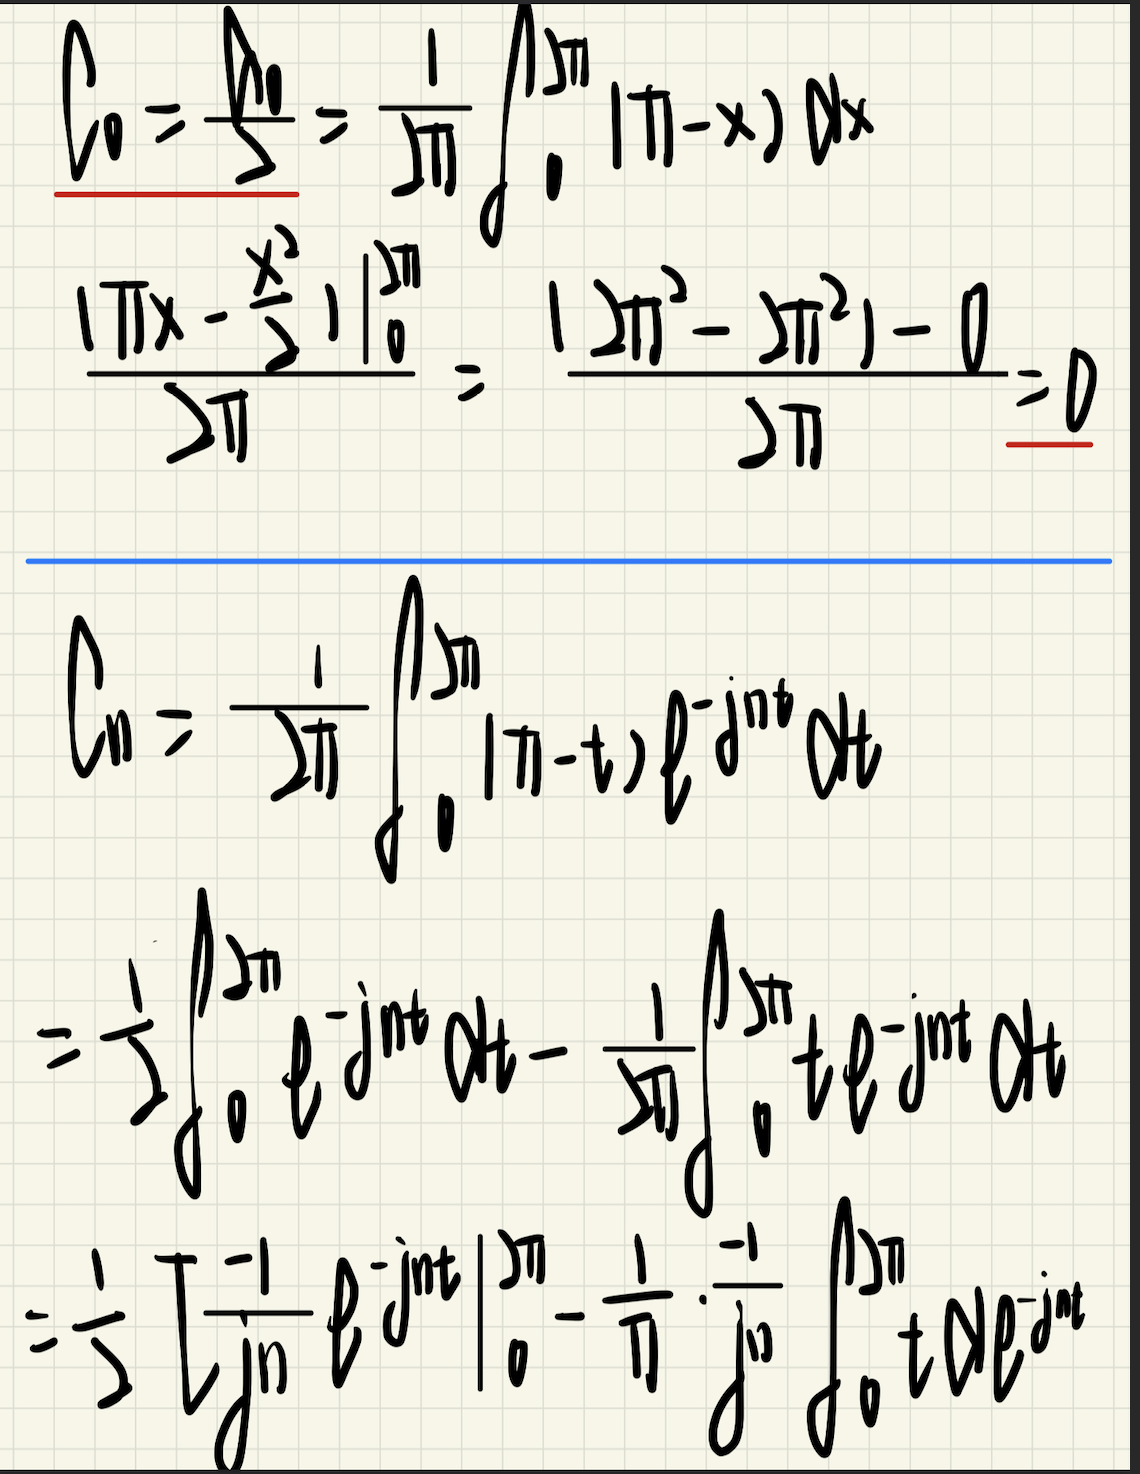 C₀ = A₀/2 = 1/2π ∫₀^2π (π-x) dx
(πx - x²/2)|₀^2π / 2π = (2π² - 2π²) - 0 / 2π = 0
Cn = 1/2π ∫₀^2π (π-t) e^-jnt dt
= 1/2 ∫₀^2π e^-jnt dt - 1/2π ∫₀^2π t e^-jnt dt
= 1/2 [ -1/jn e^-jnt |₀^2π - 1/π · -1/jn ∫₀^2π t de^-jnt